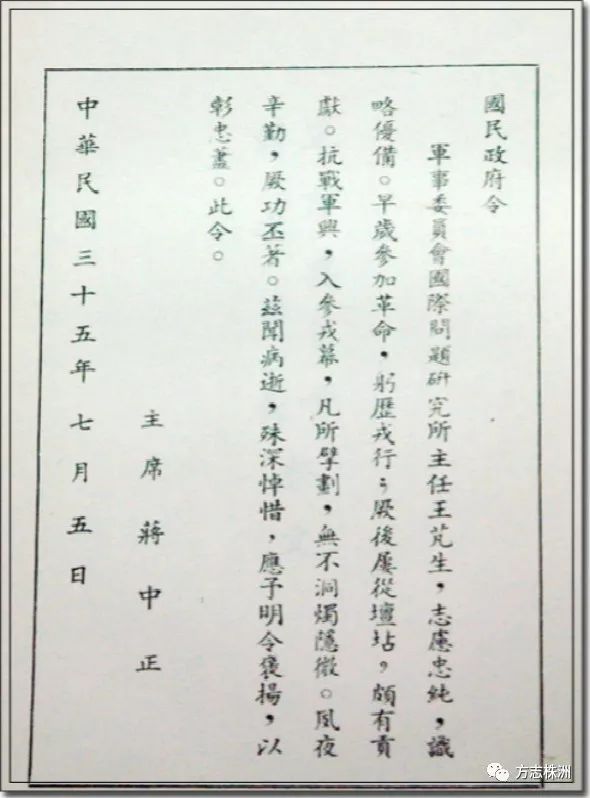 國民政府令
軍事委員會國際問題研究所主任王芃生，志慮忠純，識
略優備。早歲參加革命，躬歷戎行；厥後屢從壇坫，頗有貢
獻。抗戰軍興，入參戎幕，凡所擘劃，無不洞燭隱微。夙夜
辛勤，厥功丕著。茲聞病逝，殊深悼惜，應予明令褒揚，以
彰忠藎。此令。
主席蔣中正
中華民國三十五年七月五日
方志株洲